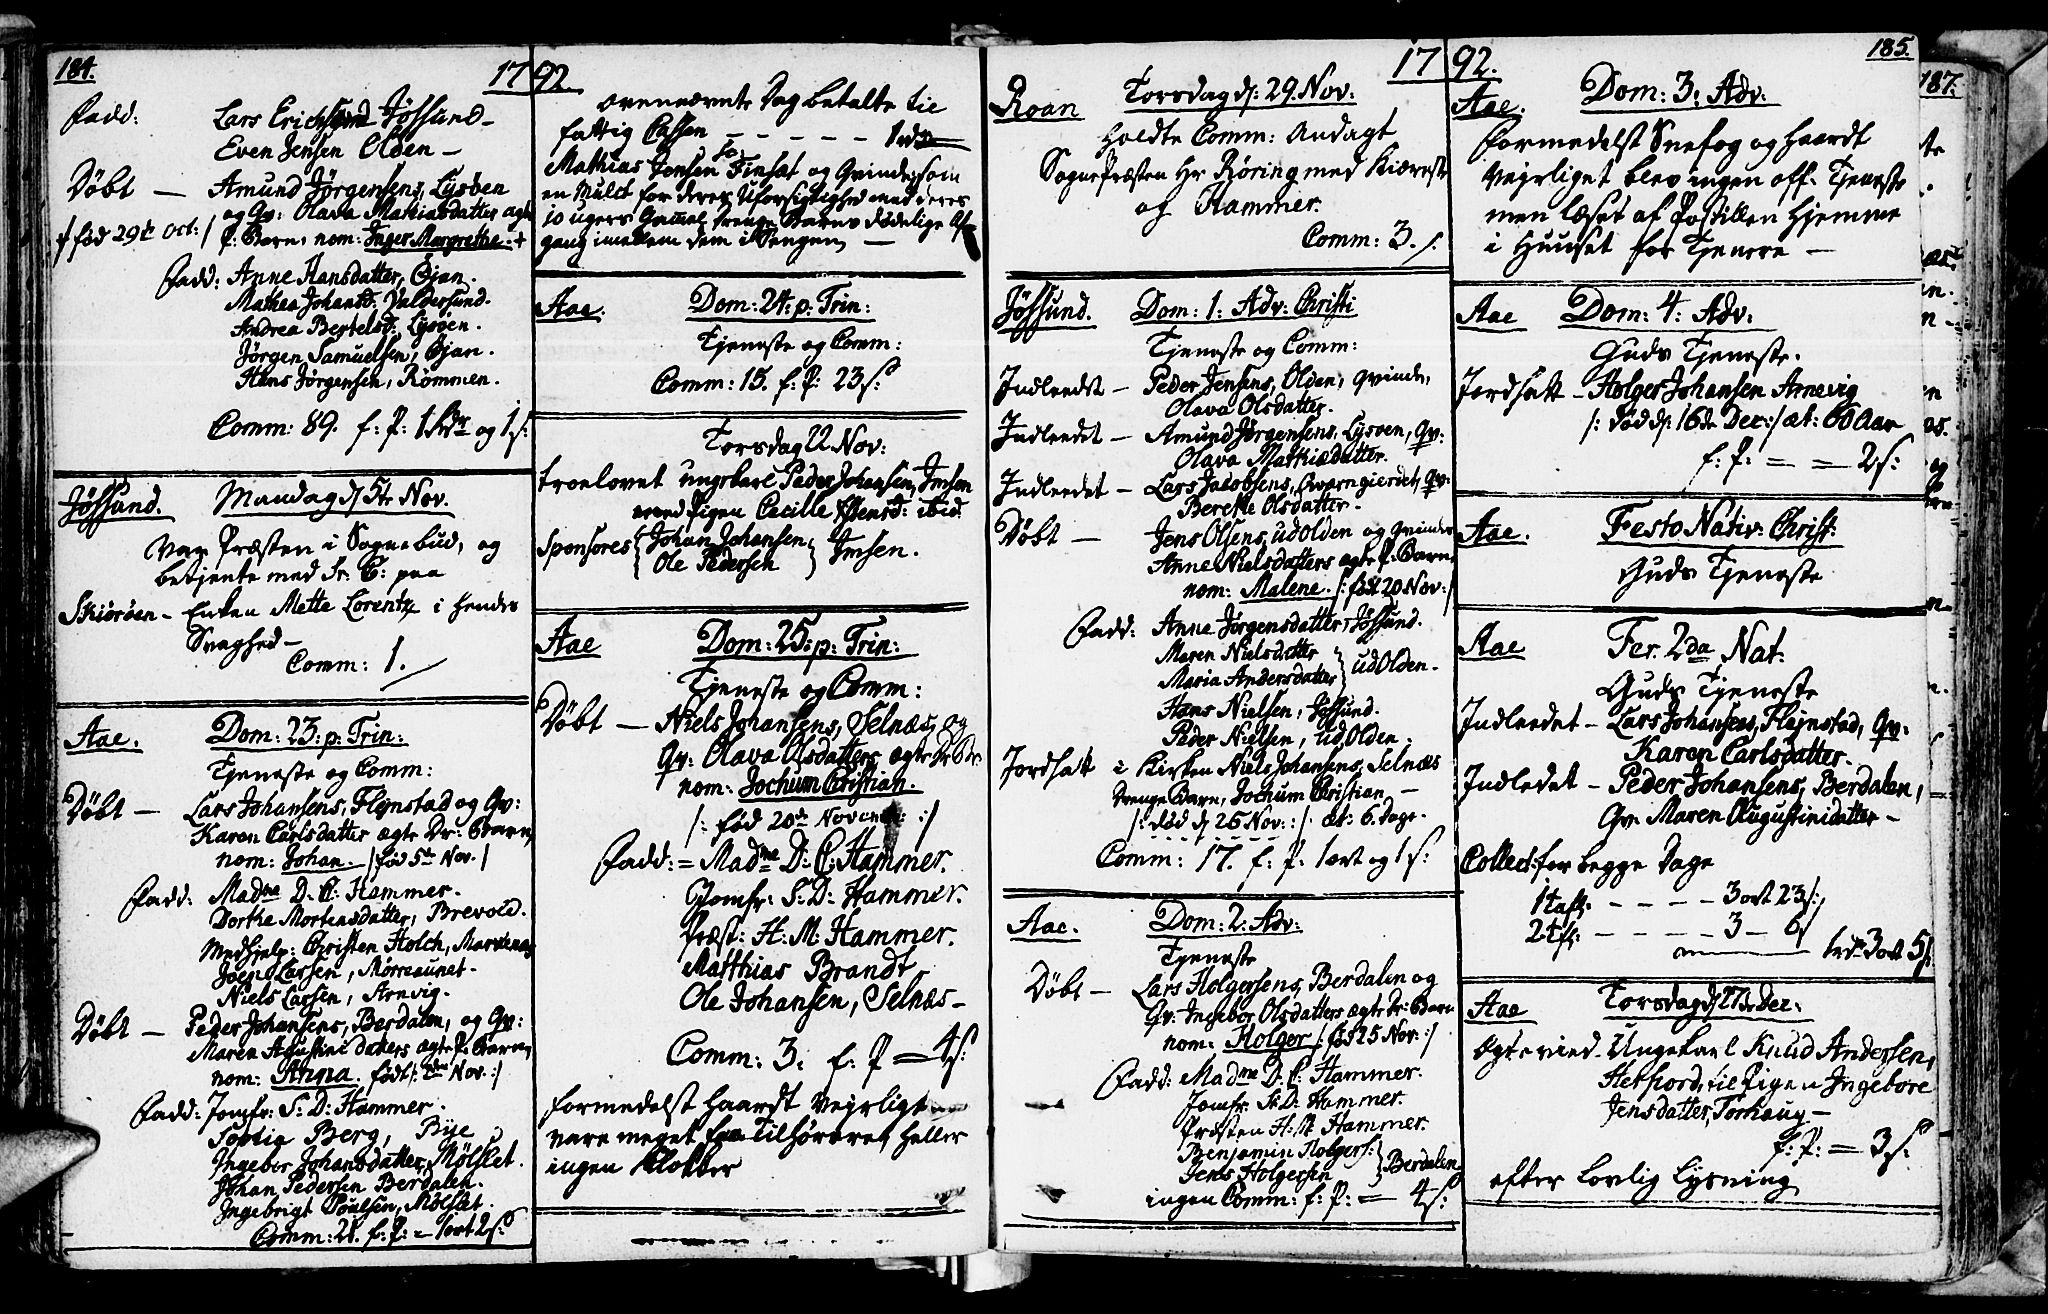 184.
1792.
Fadd: Lars Erichsen Jøssund
Even Jensen Olden
Døbt — Amund Jørgensens, Lysøen
og Qv: Olava Mathiasdatter ægte
/: fød 29de Oct: / P: Barn, nom: Inger Margrethe.
Fadd: Anne Hansdatter, Øjan.
Mathea Johansd: Valdersund.
Andrea Bertelsd: Lysøen.
Jørgen Samuelsen, Øjan.
Hans Jørgensen, Rømmen.
Comm: 89. f: P: 1 Rdr og 1 s:
Jøssund. Mandag d: 5te Nov.
Var Præsten i Sognebud, og
betjente med Sr. C: paa
Skiørøen — Enken Mette Lorentz i hendes
Svaghed —
Comm: 1.
Aae. Dom: 23: p: Trin:
Tjeneste og Comm:
Døbt — Lars Johansens, Flejnstad og Qv:
Karen Carlsdatter ægte Dr: Barn,
nom: Johan. / fød 5te Nov. /
Fadd: Madme D. C: Hammer.
Dorthe Mortensdatter, Brevold.
Medhjelp: Christen Holch,
Joen Larsen, Mørreaunet.
Niels Larsen, Arnvig.
Døbt — Peder Johansens, Berdalen, og Qv:
Maren Agustini datters ægte P: Barn,
nom: Anna. født /: Nov. :/
Fadd: Jomfr: S: D: Hammer.
Berg, Bye
Ingebor Johansdatter, Mølslet.
Johan Pedersen Berdalen.
Ingebrigt Poulsen, Mølslet.
Comm: 21. f: P: = 1 ort 2 s:
ovennævnte Dag betalte til
fattig Cassen — — — — — 1 rdr
Mathias Jensen Finset og Qvinde, som
en Mulct for deres Uforsigtighed med deres
10 ugers Gammel Drenge Barns dødelige Af-
gang imellem dem i Sengen, —
Aae. Dom: 24: p: Trin:
Tjeneste og Comm:
Comm: 15. f: P: 23 s:
Torsdag 22 Nov:
troelovet ungekarl Peder Johansen, Imsen
med Pigen Cecille Effensd: ibid.
Sponsores { Johan Johansen
Ole Pedersen } Imsen.
Aae Dom: 25: p: Trin:
Tjeneste og Comm:
Døbt — Niels Johansens, Selnæs, og
Qv: Olava Olsdatters ægte Dr: Br.
nom: Jochum Christian.
/: fød 20de November :/
Fadd: = Madme D: C: Hammer.
Jomfr: S: D: Hammer.
Præst: H: M: Hammer.
Matthias Brandt
Ole Johansen, Selnæs —
Comm: 3. f: P = 4 s:
Formedelst haardt Vejrligt
vare meget faa Tilhørere, heller
ingen Klokker
185.
1792.
Roan Torsdag d: 29. Nov:
holdte Comm: Andagt
SognePræsten Hr Røring med Kiæreste
og Hammer.
Comm: 3.
Jøssund. Dom: 1. Adv: Christi
Tjeneste og Comm:
Indleedt — Peder Jensens, Olden, Qvinde,
Olava Olsdatter.
Indleedet — Amund Jørgensens, Lysøen, Qv:
Olava Mathiædatter.
Indleedet — Lars Jacobsens, Qværngierdet, Qv:
Berethe Olsdatter.
Døbt — Jens Olsens, udOlden og Qvindes
Anne Nielsdatters ægte P: Barn
nom: Malene. /: fød 20 Nov: /
Fadd: Anne Jørgensdatter, Jøssund.
Maren Nielsdatter
Maria Andersdatter } udOlden.
Hans Nielsen, Jøssund.
Peder Nielsen, udOlden.
Jordsatt i Kirken Niels Johansens, Selnæs
Drenge Barn, Jochum Christian —
/: død d: 26 Nov: :/ æt: 6. Dage.
Comm: 17. f: P: 1 ort og 1 s:
Aae. Dom: 2. Adv:
Tjeneste
Døbt — Lars Holgersens, Berdalen og
Qv: Ingebor Olsdatters ægte Dr: Barn
nom: Holger /: fød 25 Nov: /
Fadd: Madme D. C: Hammer.
Jomfr: S. D: Hammer.
Præsten H: M: Hammer.
Benjamin Holgers:
Jens Holgersen } Berdalen
ingen Comm: f: P: = 4 s:
Aae. Dom: 3. Adv:
Formedelst Snefog og haardt
Vejrliget blev ingen off. Tjeneste
men læset af Postillen hjemme
i Huuset for Tjenere —
Aae Dom: 4: Adv:
Guds Tjeneste.
Jordsatt — Holger Johansen Arnevig
/: død d: 16de Dec: / æt: 60 Aar
f: P: = = 2 s:
Aae. Festo Nativ: Christ:
Guds Tjeneste
Aae Fer. 2da Nat:
Guds Tjeneste
Indleedet — Lars Johansens, Flejnstad, Qv:
Karen Carlsdatter.
Indledet — Peder Johansens, Berdalen,
Qv. Maren Augustinidatter —
Collect: for begge Dage
1 tafl. — — — — 3 ort 23 s:
2 tfl: — — — — 3 — 6
1 rdr 3 ort 5 s.
Aae Torsdag d: 27de Dec:
Ægtevied — Ungekarl Knud Andersen,
Hetfiord, til Pigen Ingebore
Jensdatter, Torhaug —
f: P: = 3 s:
efter Lovlig Lysning
187.